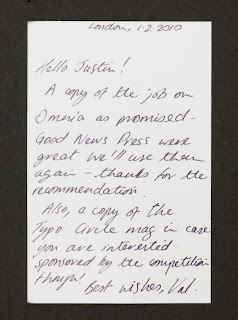 London, 1.2.2010
Hello Justin!
A copy of the job on
Omnia as promised -
Good News Press were
great. We'll use them
again - thanks for the
recommendation.
Also, a copy of the
Typo Circle mag in case
you are interested
sponsored by the competition
though!
Best wishes, Val.